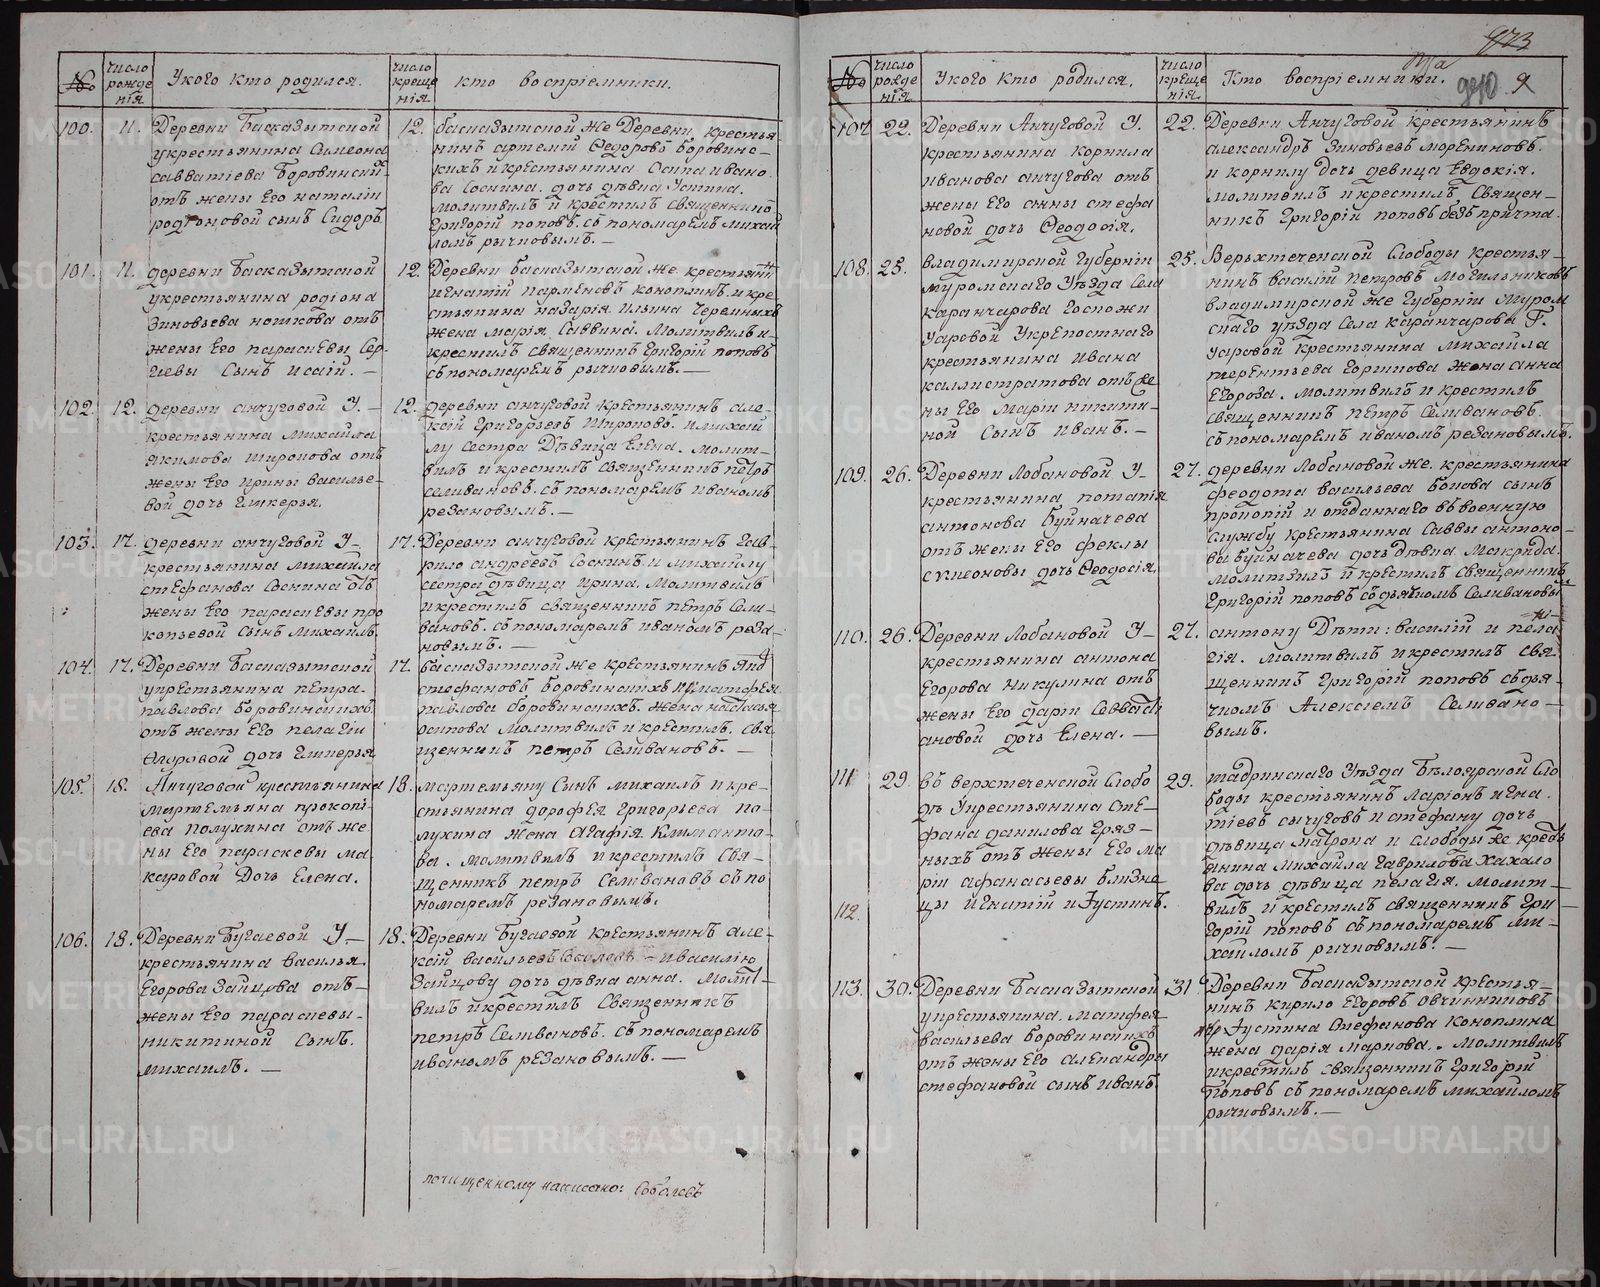 №
число рожденія
У кого кто родился.
число крещенія
кто воспріемники.
100.
11.
Деревни Басказытской
у крестьянина Симеона
савватіева Боровинских
отъ жены Его наталіи
родіоновой сынъ Сидоръ
12.
басказытской же Деревни крестья
нинъ артемій Ѳедоровъ боровинс-
кихъ и крестьянина Осипа ивано
ва Соснина. дочь дѣвка Устина.
молитвилъ и крестилъ священникъ
григорій поповъ. съ пономаремъ михай
ломъ рычковымъ. —
101.
11.
деревни басказытской
у крестьянина родіона
Зиновьева коткова отъ
жены Его параскевы Сер-
гіевы Сынъ исаій. —
12.
Деревни басказытской же. крестьянинъ
игнатій парменовъ коноплинъ. и кре
стьянина назарія ильина Черемныхъ
жена марія Саввина. Молитвилъ и
крестилъ священникъ григорій поповъ
съ пономаремъ рычковымъ. —
102.
12.
деревни анчуговой У. —
крестьянина михайла
якимова широкова отъ
жены Его ирины василье-
вой дочь Гликерья.
12.
деревни анчуговой крестьянинъ але-
ксій григорьевъ Широковъ. и михай
лу сестра Дѣвица Елена. молит-
вилъ и крестилъ священникъ петръ
селивановъ. съ пономаремъ иваномъ
резановымъ. —
103.
17.
деревни анчуговой У-
крестьянина михайла
стефанова Соснина отъ
жены Его параскевы про
копьевой сынъ михаилъ.
17.
Деревни анчуговой крестьянинъ гав-
рило андреевъ Соснинъ и михайлу
сестра дѣвица ирина. Молитвилъ
и крестилъ священникъ петръ Сели-
вановъ. съ пономаремъ иваномъ реза-
новымъ. —
104.
17.
Деревни басказытской
у крестьянина петра.
павлова боровинскихъ.
отъ жены Его пелагіи
Ѳедоровой дочь Гликерья
17.
басказытской же крестьянинъ
стефановъ боровинскихъ и матфея
павлова боровинскихъ. жена настасья
осипова Молитвилъ и крестилъ. свя
щенникъ петръ Селивановъ. —
105.
18.
Анчуговой крестьянина
мартемьяна прокопі-
ева полухина отъ же
ны Его параскевы ма
каровой Дочь Елена.
18.
мартемьяну Сынъ михаилъ и кре-
стьянина дорофея григорьева по-
лухина жена Агафія Климанто-
ва. молитвилъ и крестилъ Свя-
щенникъ петръ Селивановъ съ по
номаремъ резановымъ.
106.
18.
Деревни Бугаевой У —
крестьянина василья.
Егорова Зайцова отъ-
жены Его параскевы-
никитиной Сынъ.
михаилъ. —
18.
Деревни Бугаевой крестьянинъ але-
ксій васильевъ Соколовъ — и василію
Зайцову дочь дѣвка анна. Молит-
вилъ и крестилъ Священникъ
петръ Селивановъ. съ пономаремъ
иваномъ резановымъ. —
почищенному написано: Соболевъ
№
число рожденія
У кого кто родился.
число крещенія
Кто воспріемники.
107.
22.
Деревни Анчуговой У.
крестьянина корнила
иванова анчугова отъ
жены Его анны стефа
новой дочь Ѳеодосія.
22.
Деревни Анчуговой крестьянинъ
александръ Зиновьевъ морениновъ.
и корнилу дочь девица Евдокія.
молитвилъ и крестилъ Священ-
никъ григорій поповъ безъ причта.
108.
25.
владимирской губерніи
муромскаго Уѣзда Села
карачарова госпожи
Уваровой Укрепостнаго
крестьянина ивана
каллистратова отъ же
ны Его маріи никити-
ной Сынъ иванъ. —
25.
Верьхтеченской Слободы крестья-
нинъ василій петровъ могильниковъ
владимирской же губерніи муром
скаго уѣзда Села карачарова Г.
Уваровой крестьянина михайла
терентьева горшкова жена анна
Егорова. молитвилъ и крестилъ
священникъ петръ Селивановъ.
съ пономаремъ иваномъ резановымъ.
109.
26.
Деревни Лобановой У-
крестьянина потапія
антонова буйначева
отъ жены Его феклы
симеоновы дочь Ѳеодосія.
27.
деревни Лобановой же. крестьянина
феодота васильева бокова сынъ
прокопій и отданнаго въ военную
службу крестьянина Саввы антоно-
ва буйначева дочь дѣвка Макрида.
молитвилъ и крестилъ священникъ
григорій поповъ съ дьячкомъ Селивановы-
110.
26.
Деревни Лобановой У-
крестьянина антона
Егорова никулина отъ
жены Его даріи Севасті
ановой дочь Елена. —
27.
антону Дѣти: василій и пела-
гія. молитвилъ и крестилъ свя
щенникъ григорій поповъ съ дья-
чкомъ Алексіемъ Селивано —
вымъ.
111
112.
29.
въ верхтеченской Слобо
дѣ У крестьянина сте-
фана данилова гряз-
ныхъ отъ жены Его ма
ріи афанасьевы близне
цы игнатій и Іустинъ.
29.
шадринскаго Уѣзда Бѣлоярской Сло
боды крестьянинъ Ларіонъ игна.
тіевъ сычуговъ и стефану дочь
дѣвица матрона и слободы же кресть
янина михайла гаврилова хахало
ва дочь дѣвица пелагія. молит —
вилъ и крестилъ священникъ гри —
горій поповъ съ пономаремъ ми-
хайломъ ричковымъ. —
113.
30.
Деревни басказытской
у крестьянина. матфея
васильева боровинскихъ
отъ жены Его александры
стефановой сынъ иванъ
31
Деревни басказытской крестья-
нинъ кирило Егоровъ овчинниковъ
Іустина Стефанова коноплина
жена дарія маркова. молитвилъ
и крестилъ священникъ григорій
поповъ съ пономаремъ михайломъ
рычковымъ. —